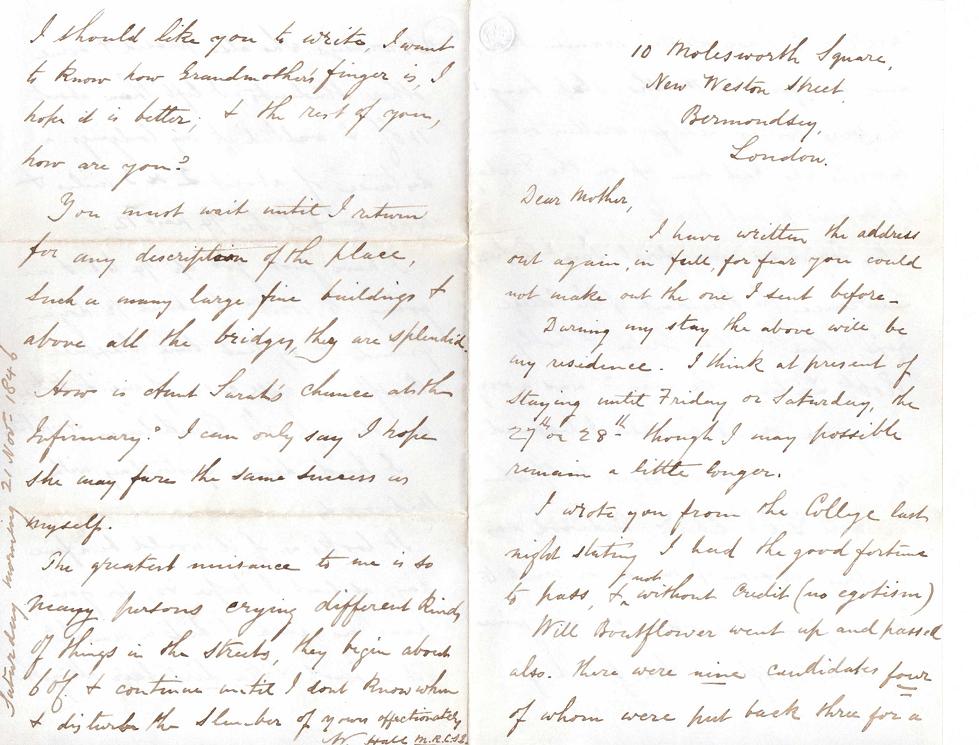 10 Molesworth Square,
New Weston Street,
Bermondsey,
London.
Dear Mother,
I have written the address
out again, in full, for fear you could
not make out the one I sent before_
During my stay the above will be
my residence. I think at present of
staying until Friday or Saturday, the
27th or 28th though I may possible
remain a little longer.
I wrote you from the College last
night stating I had the good fortune
to pass, & not without credit (no egotism)
Will Boutflower went up and passed
also. there were nine candidates four
of whom were put back three for a
I should like you to write, I want
to know how Grandmother's finger is, I
hope it is better; & the rest of you,
how are you?
You must wait until I return
for any description of the place,
such a many large fine buildings &
above all the bridges, they are splendid.
How is Aunt Sarah's chance at the
Infirmary? I can only say I hope
she may fare the same success as
myself.
The greatest nuisance to me is so
many persons crying different kinds
of things in the streets, they begin about
6 & continue until I dont know when
& disturb the slumber of yours affectionately
N. Hall M.R.C.S.L.
Saturday morning 21 Novr 1846